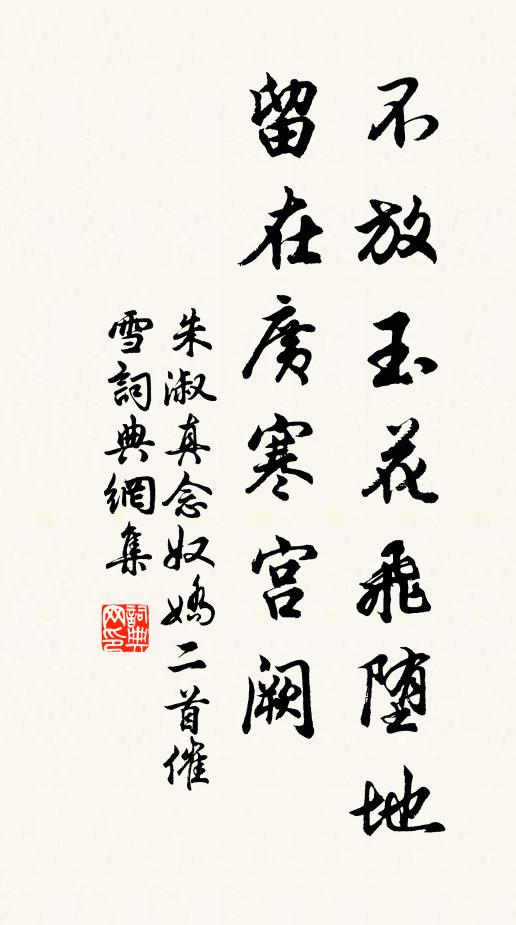 不放玉花飛堕地
留在廣寒宮闕
朱淑真念奴嬌二首催
雪詞典網集
詞典网印